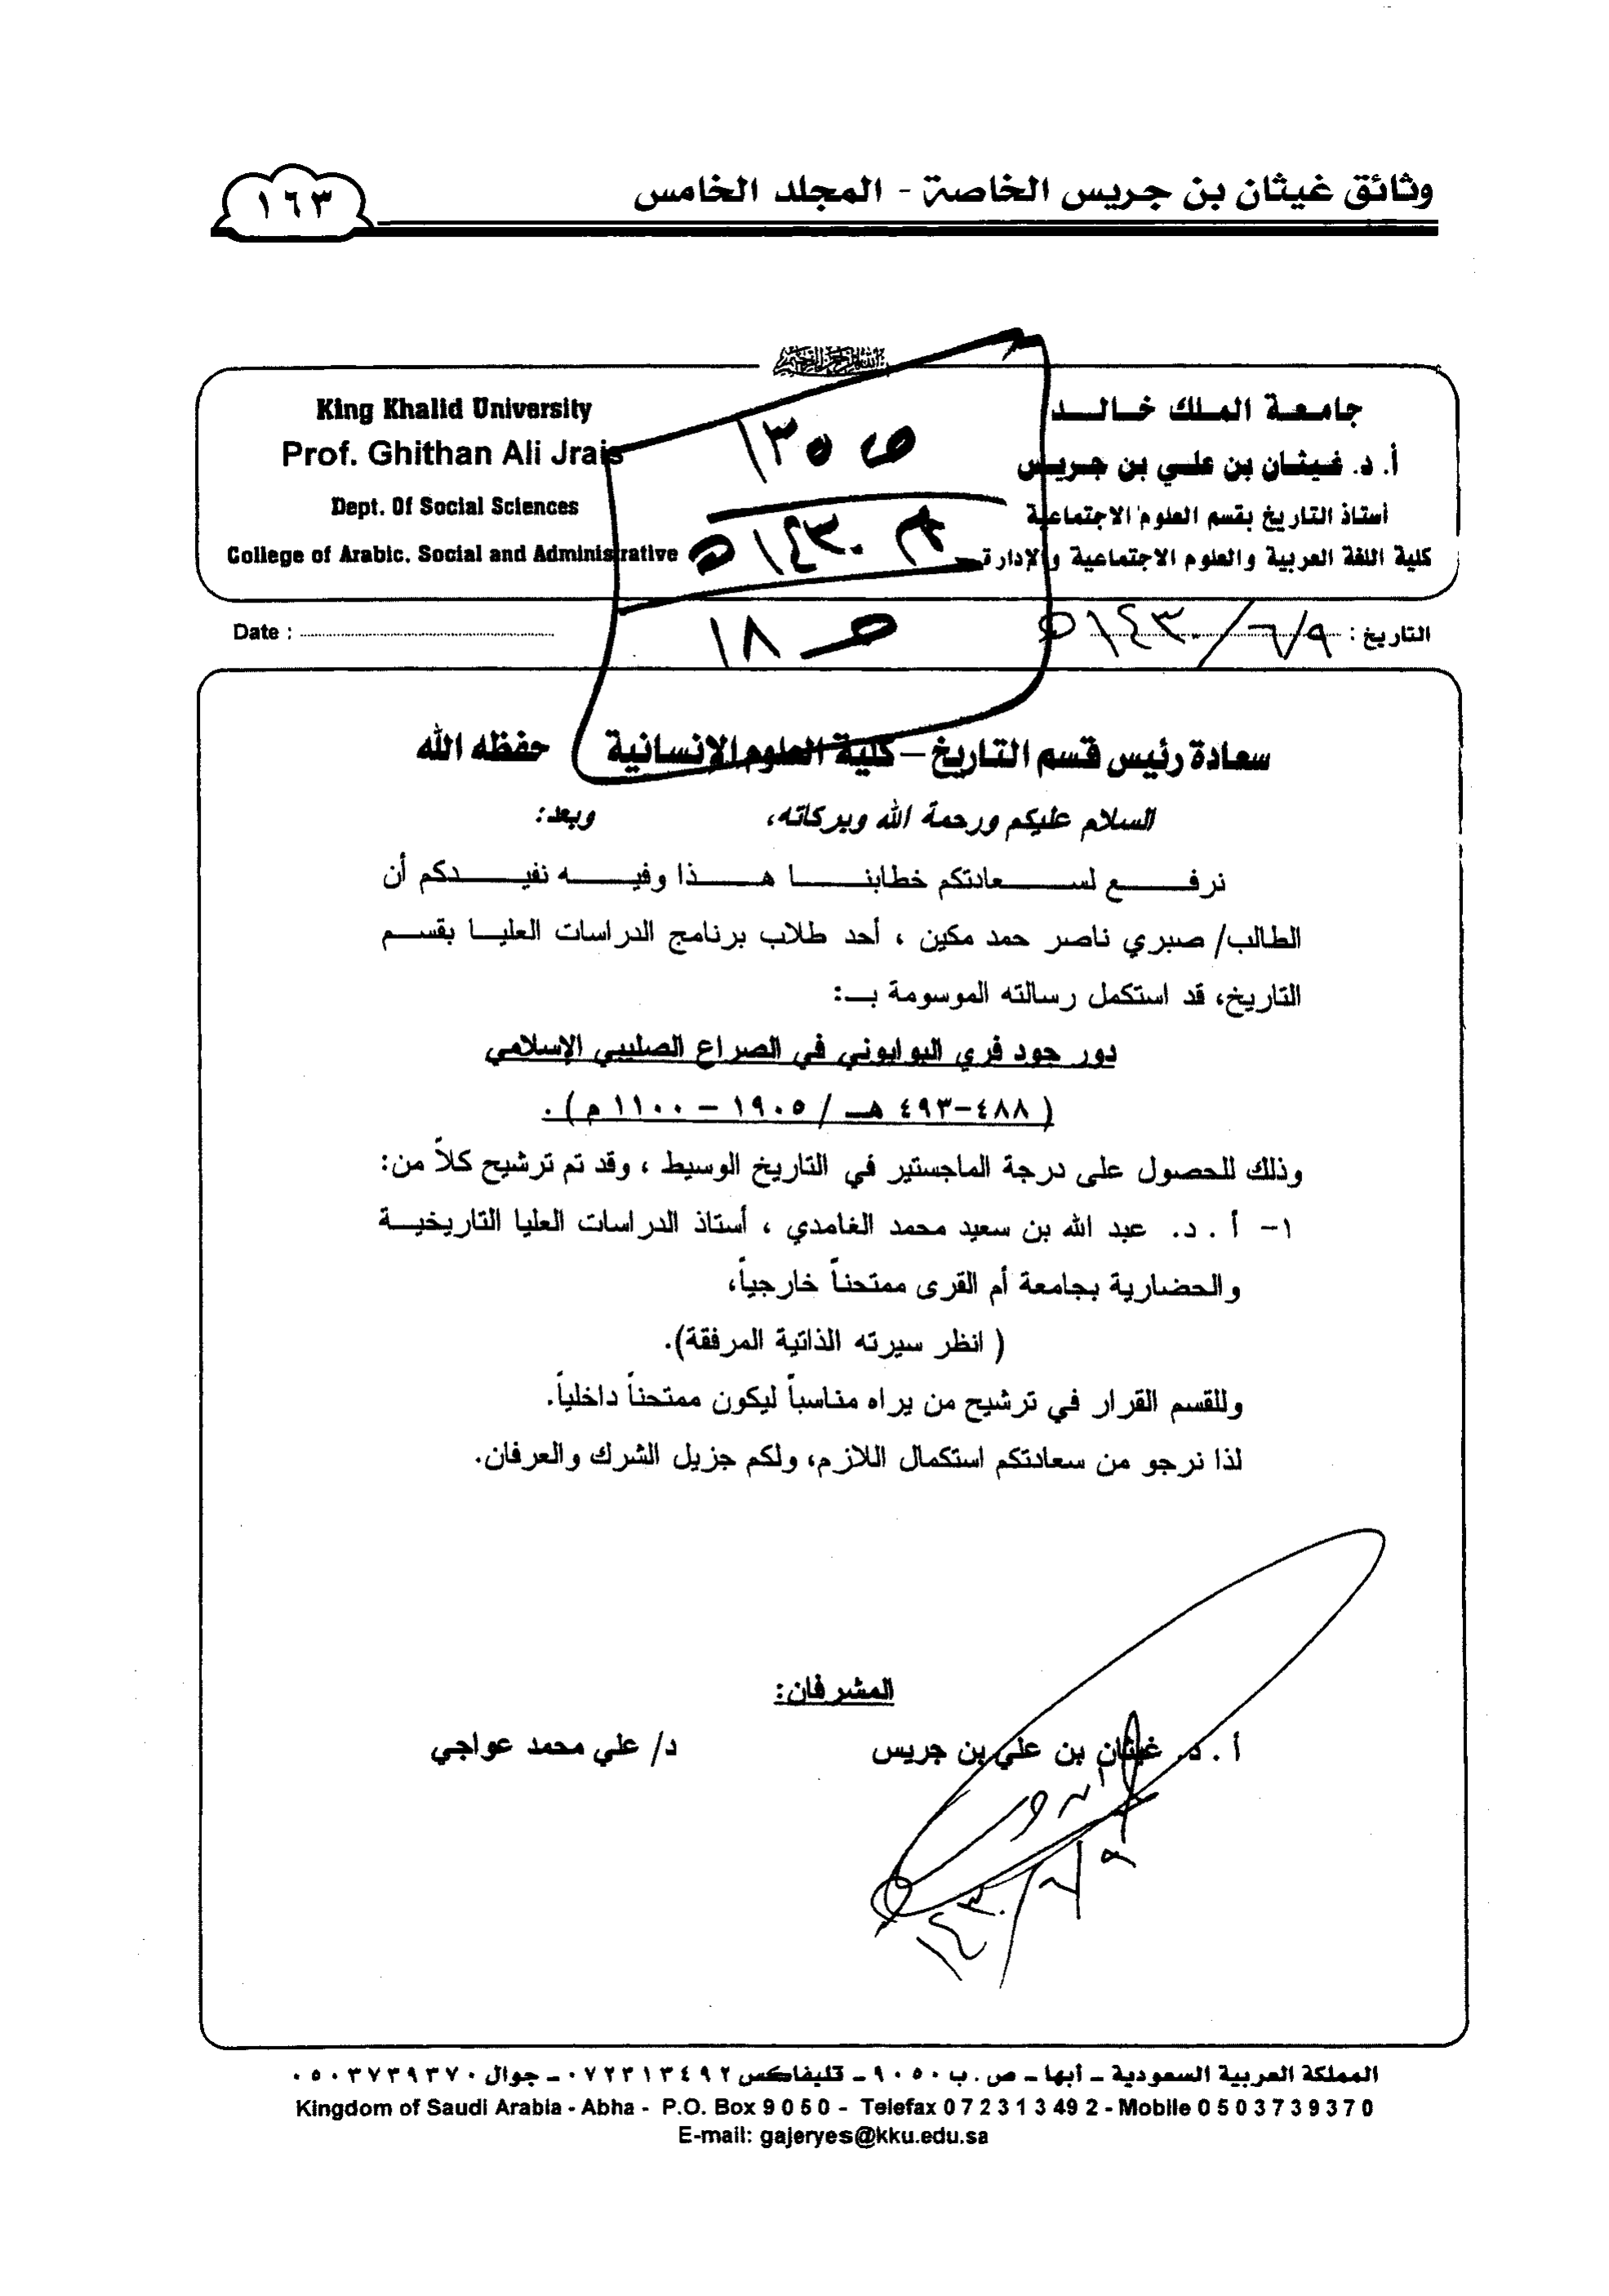 وثائق غيثان بن جريس الخاصة - المجلد الخامس
١٦٣
بسم الله الرحمن الرحيم
جامعة الملك خالد
أ. د. غيثان بن علي بن جريس
أستاذ التاريخ بقسم العلوم الاجتماعية
كلية اللغة العربية والعلوم الاجتماعية والإدارة
King Khalid University
Prof. Ghithan Ali Jrais
Dept. Of Social Sciences
College of Arabic. Social and Administrative
١٤٣٠هـ
ص ١٨
التاريخ : ٩/٦/١٤٣٠هـ
Date :
سعادة رئيس قسم التاريخ – كلية العلوم الإنسانية حفظه الله
السلام عليكم ورحمة الله وبركاته، وبعد:
نرفع لسعادتكم خطابنا هذا وفيه نفيدكم أن
الطالب/ صبري ناصر حمد مكين ، أحد طلاب برنامج الدراسات العليا بقسم
التاريخ، قد استكمل رسالته الموسومة بـ:
دور جود فري البوايوني في الصراع الصليبي الإسلامي
( ٤٨٨-٤٩٣ هـ / ١٩٠٥ – ١١٠٠ م ).
وذلك للحصول على درجة الماجستير في التاريخ الوسيط ، وقد تم ترشيح كلاً من:
١- أ . د. عبد الله بن سعيد محمد الغامدي ، أستاذ الدراسات العليا التاريخية
والحضارية بجامعة أم القرى ممتحناً خارجياً،
( انظر سيرته الذاتية المرفقة).
وللقسم القرار في ترشيح من يراه مناسباً ليكون ممتحناً داخلياً.
لذا نرجو من سعادتكم استكمال اللازم، ولكم جزيل الشرك والعرفان.
المشرفان:
أ . د. غيثان بن علي بن جريس د/ علي محمد عواجي
٩/٦/١٤٣٠
المملكة العربية السعودية ـ أبها ـ ص . ب ٩٠٥٠ ـ تليفاكس ٠٧٢٣١٣٤٩٢ ـ جوال ٠٥٠٣٧٣٩٣٧٠
Kingdom of Saudi Arabia - Abha - P.O. Box 9 0 5 0 - Telefax 0 7 2 3 1 3 49 2 - Mobile 0 5 0 3 7 3 9 3 7 0
E-mail: gajeryes@kku.edu.sa